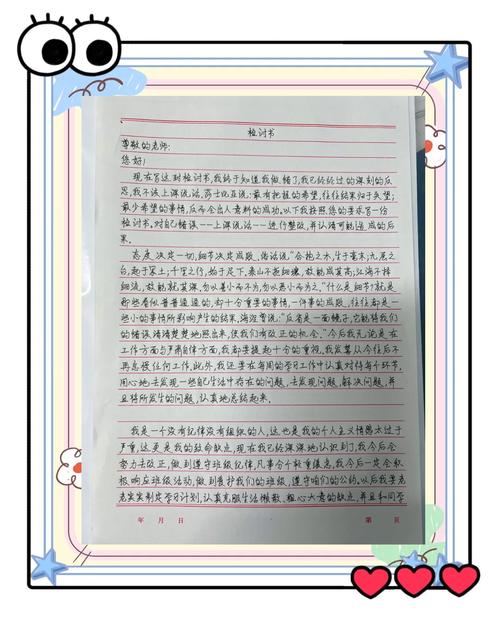 检讨书
尊敬的老师:
您好!
现在写这封检讨书,我终于知道我做错了,我已经经过的深刻的反
思,我不该上课说话,莎士比亚说:最有把握的希望,往往结果归于失望;
最少希望的事情,反而会出人意料的成功。以下我按照您的要求写一份
检讨书。对自己错误--上课说话--进行整改,并认清可能造成的后
果。
态度决定一切,细节决定成败。俗话说:"合抱之木,生于毫末;九层之
台,起于累土;千里之行,始于足下。泰山不拒细壤,故能成其高;江海不择
细流,故能就其深。勿以善小而不为,勿以恶小而为之。"什么是细节?就是
那些看似普普通通的,却十分重要的事情,一件事的成败,往往都是一
些小的事情所影响产生的结果。海涅曾说:"反省是一面镜子,它能将我们
的错误清清楚楚地照出来,使我们有改正的机会。"今后我无论是在
工作方面与严肃自律方面,我都要提起十分的重视。我发誓从今往后不
再忽视任何工作,此外,我还要在每周的学习工作中认真对待每个环节,
用心地去发现一些自己生活中存在的问题,去发现问题,解决问题,并
且将所发生的问题,认真地总结起来。
我是一个没有纪律没有组织的人,这也是我的个人主义情愚太过于
严重,这更是我的致命缺点,现在我已经深深地认识到了,我今后会
努力去改正,做到遵守班级纪律,凡事令个积重信念,我今后一定会积
极响应班级活动,做到爱护我们的班级,遵守咱们的公约。以后我要老
老实实制定学习计划,认真克服生活懒散、粗心大意的缺点,并且和同学
年 月 日 第 页